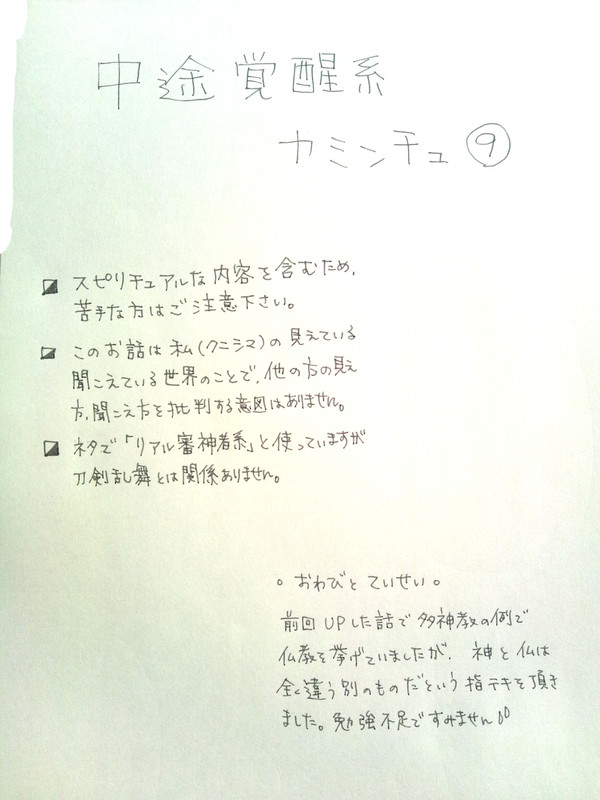 中途覚醒系
カミンチュ⑨
スピリチュアルな内容を含むため、
苦手な方はご注意下さい。
このお話は私(クニシマ)の見えている
聞こえている世界のことで、他の方の見え
方、聞こえ方を批判する意図はありません。
ネタで「リアル審神者系」と使っていますが
刀剣乱舞とは関係ありません。
。おわびとていせい。
前回UPした話で多神教の例で
仏教を挙げていましたが、神と仏は
全く違う別のものだという指テキを頂き
ました。勉強不足ですみません